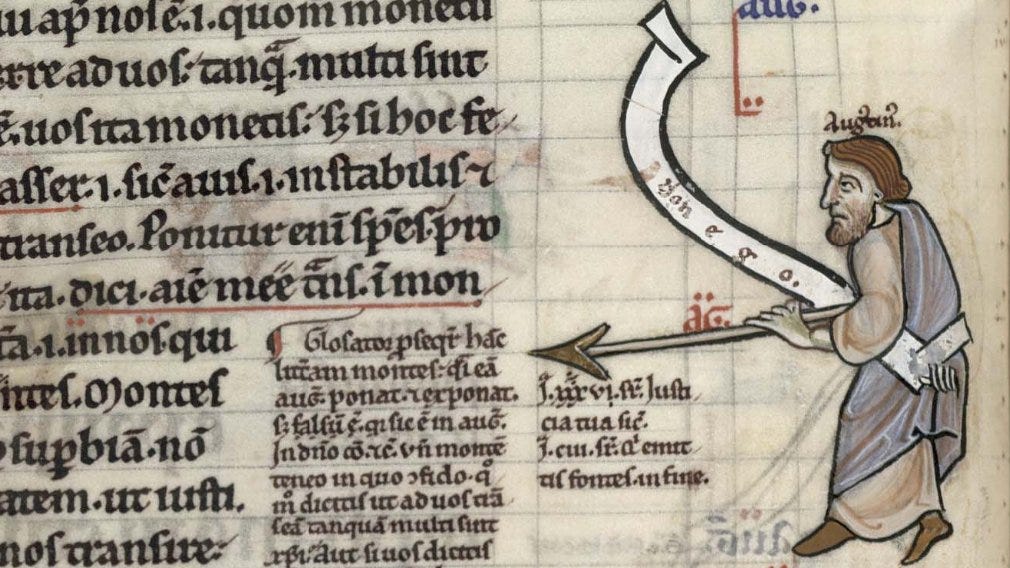 ui ap̄ nosc̄.i. quom moneti
erre ad uos. tanq̄. multi sint
ē. uos ita monetis: sꝫ si hoc fe
asser.i. sic̄ auis.i. instabilis ⁊
transeo. Ponitur eni᷑ sp̄es. pro
ita. dici. aie᷑ mee᷑ t̄ns. i᷑ mon
ta᷑.i. in nos qui
ntes. Montes
sup̄biam᷑. no᷑
atem. ut iusti.
nos transire:
Glosator p̄seqt᷑ hac᷑
litt̄am montes: qͥ ea᷑
aug̅. ponat. ⁊ exponat.
sꝫ falsu᷑ ē. qi sic ē in aug̅.
In dn̄o co᷑. ⁊c᷑. vn̄ monte᷑
teneo in quo ↄfido. qͦ
m̊ dicitis ut ad uos tra᷑
sea᷑ tanqua᷑ multi sint
xp̄i. Aut si uos dicitis
aug̅.
Augͦtin᷑.
Non
e
g
o.
aG̅.
J. xxxvi. st᷑. Justi
cia tua sic̄.
J. ciii. st᷑. Qͥ emit
tis fontes. in fine.